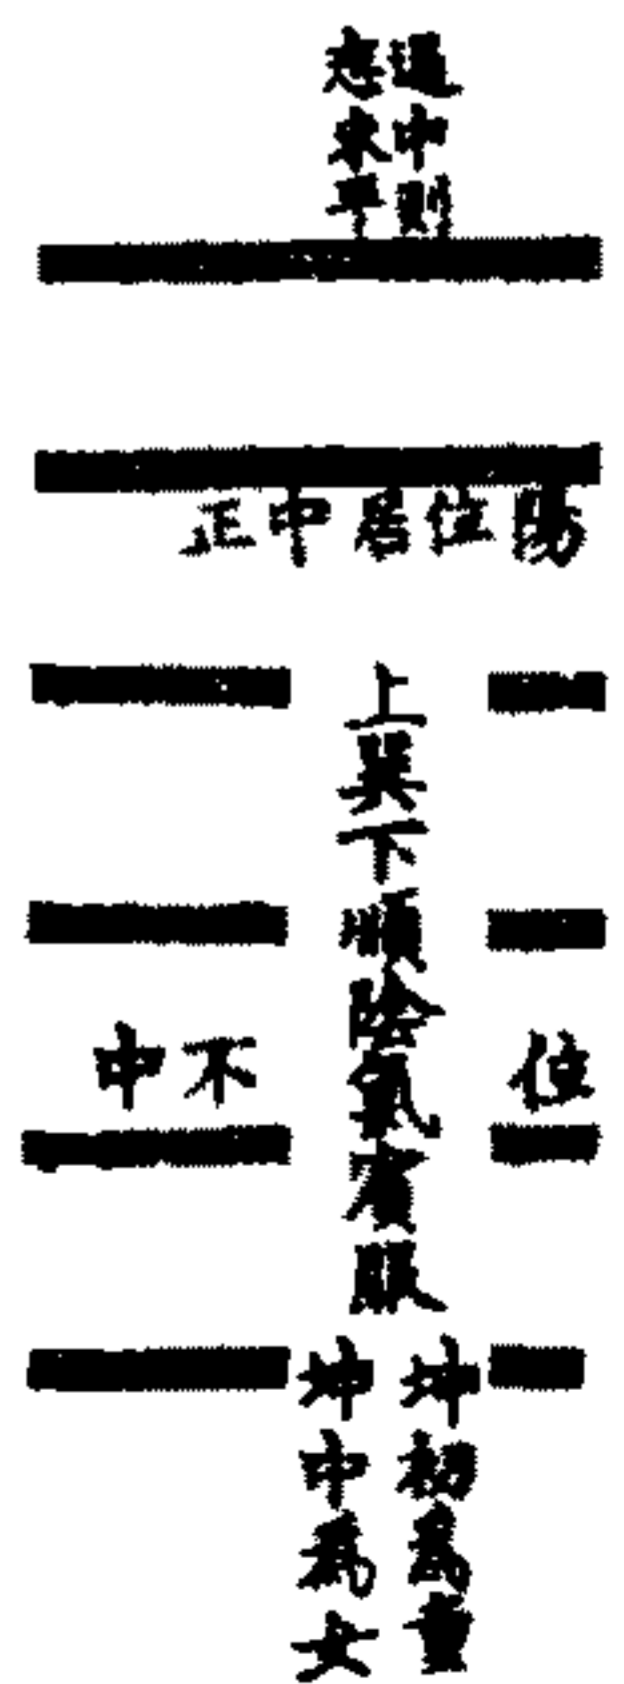 過中則
志未平
陽位居中正
上巽下順陰氣賓服
位不中
坤初為童
坤中為女